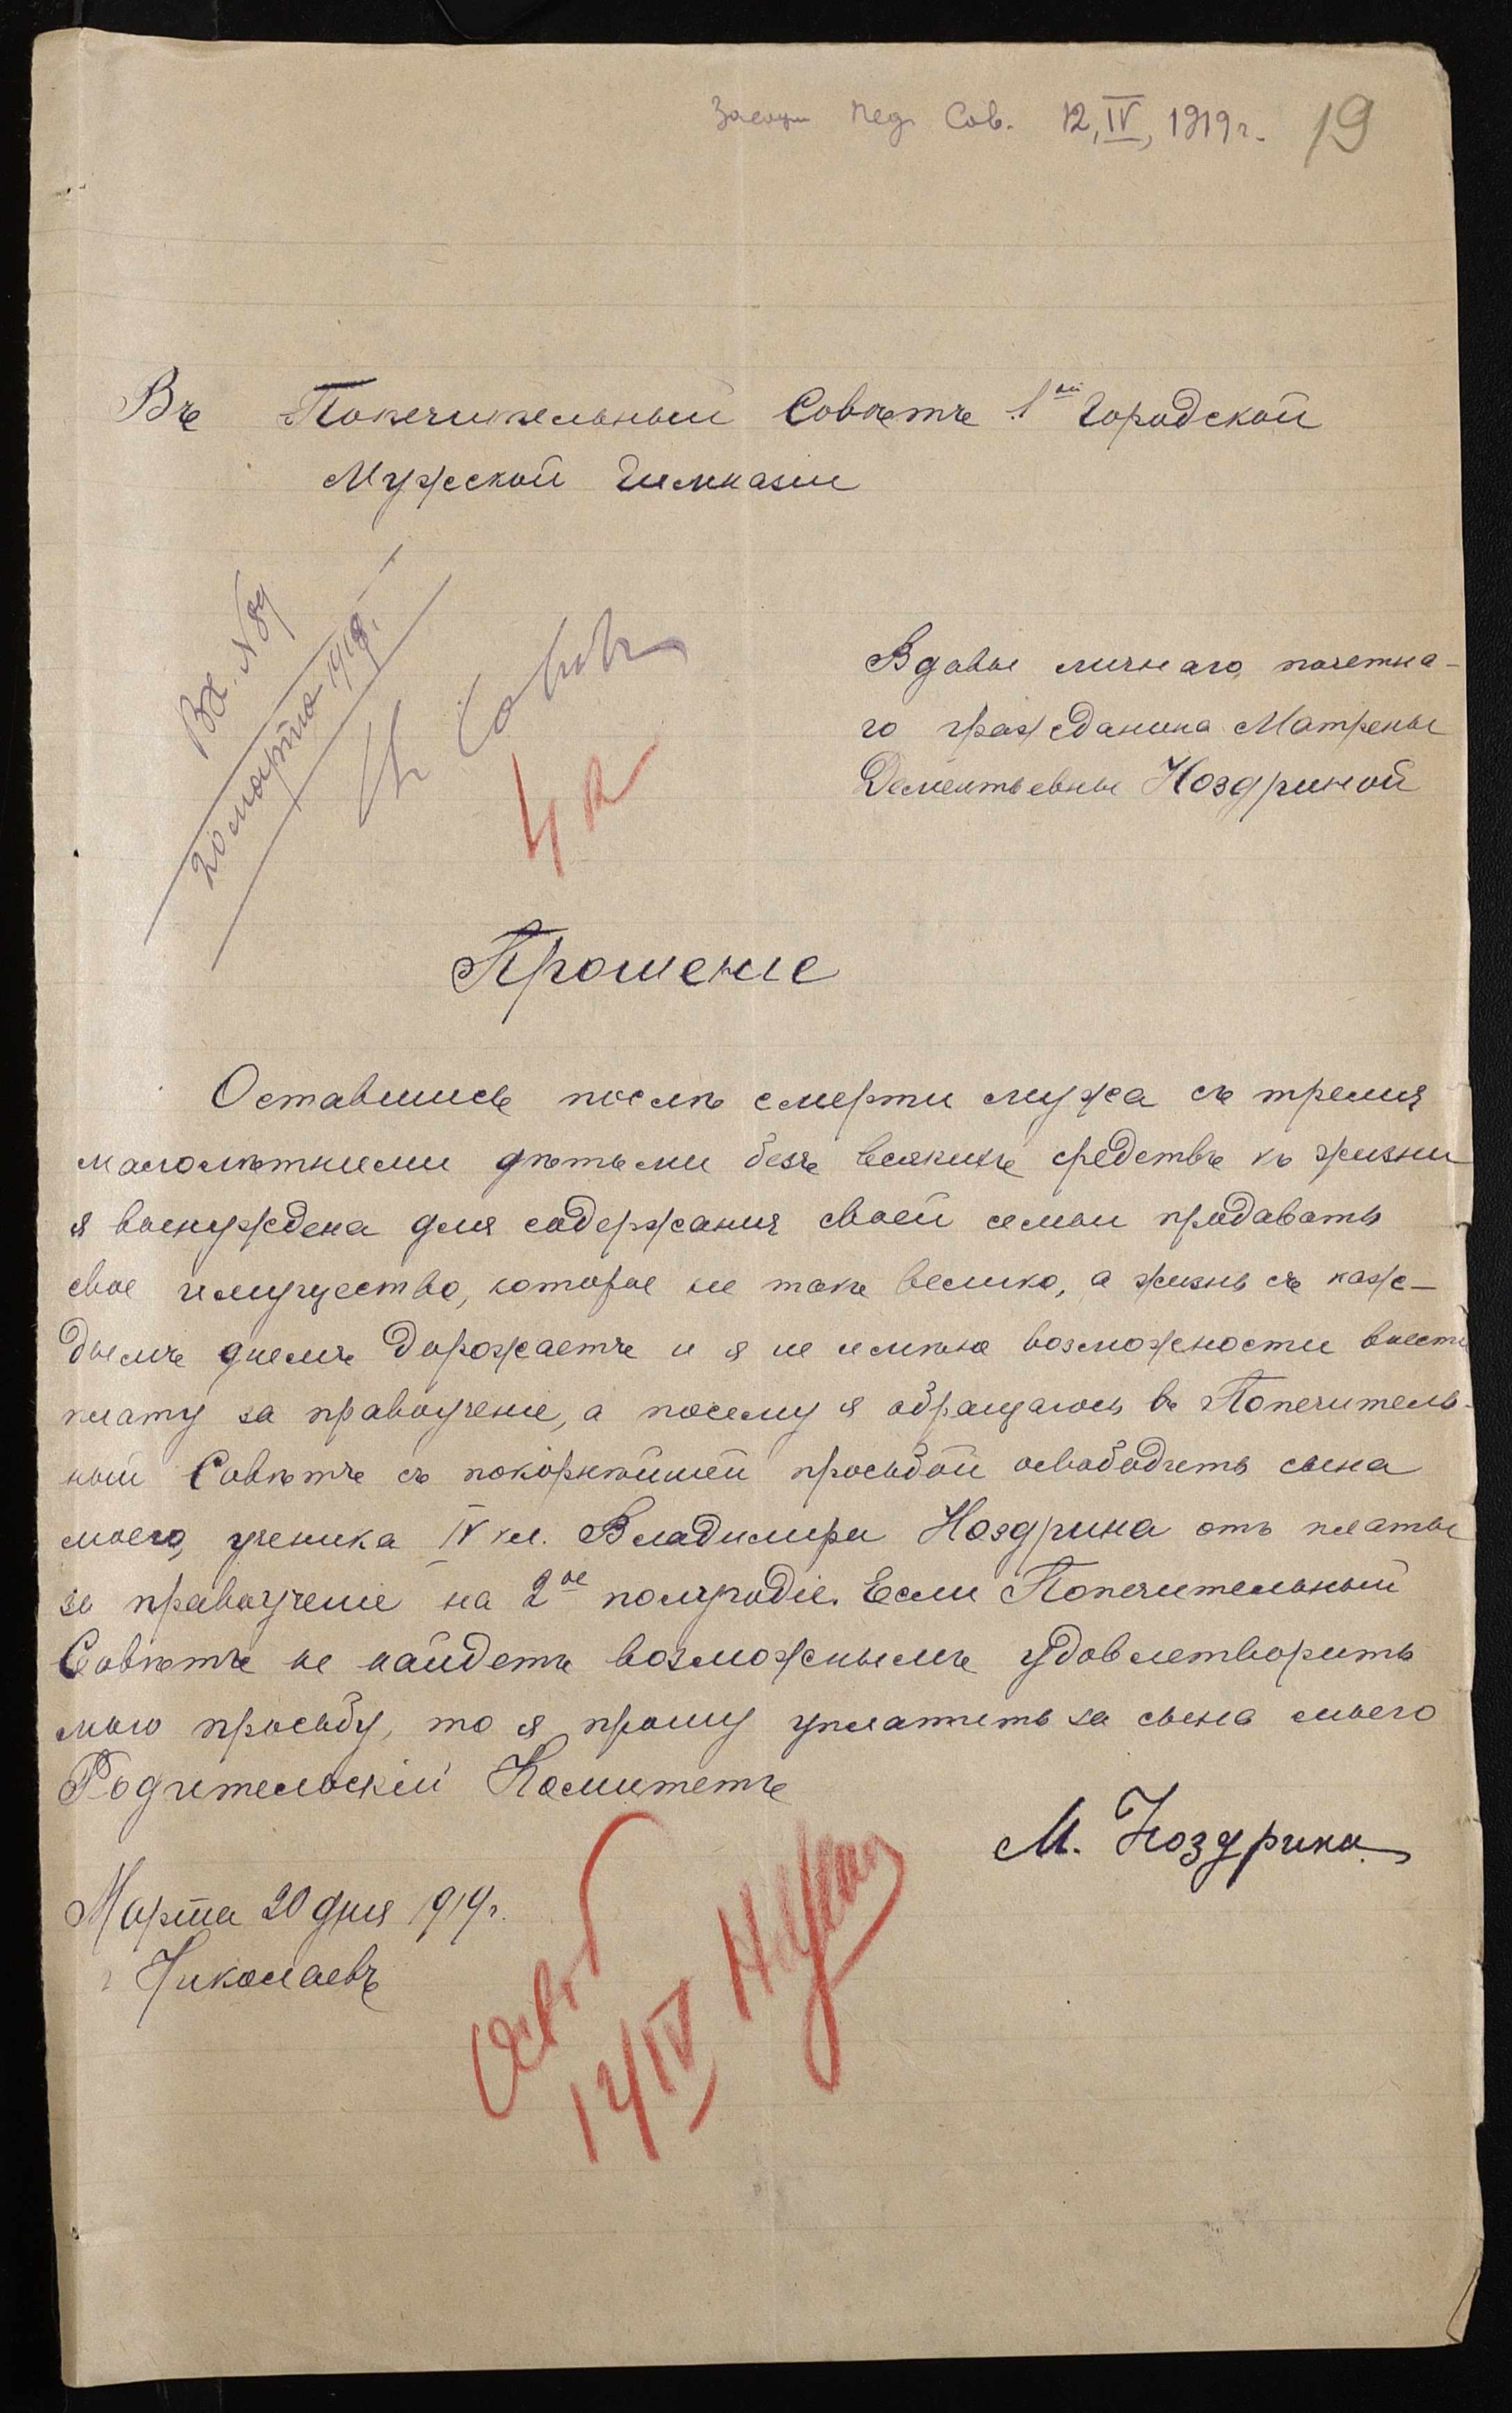 Пед. Сов. 12, IV, 1919 г. 19
Въ Попечительный Совѣтъ 1ой Городской
Мужской Гимназіи
Вх. N 89
20 марта 1919 г.
Въ Совѣтъ
Вдовы личнаго почетна-
го гражданина Матрены
Дементьевны Ноздриной
Прошеніе
Оставшись послѣ смерти мужа съ тремя
малолѣтними дѣтьми безъ всякихъ средствъ къ жизни
я вынуждена для содержания своей семьи продавать
свое имущество, которое не такъ велико, а жизнь съ каж-
дымъ днемъ дорожаетъ и я не имѣю возможности внести
плату за правоученіе, а посему я обращаюсь въ Попечитель-
ный Совѣтъ съ покорнѣйшей просьбой освободить сына
моего, ученика IV кл. Владимира Ноздрина отъ платы
за правоученіе на 2ое полугодіе. Если Попечительный
Совѣтъ не найдетъ возможнымъ удовлетворить
мою просьбу, то я прошу уплатить за сына моего
Родительскій Комитетъ
М. Ноздрина
Марта 20 дня 1919 г.
г Николаевъ
12/IV